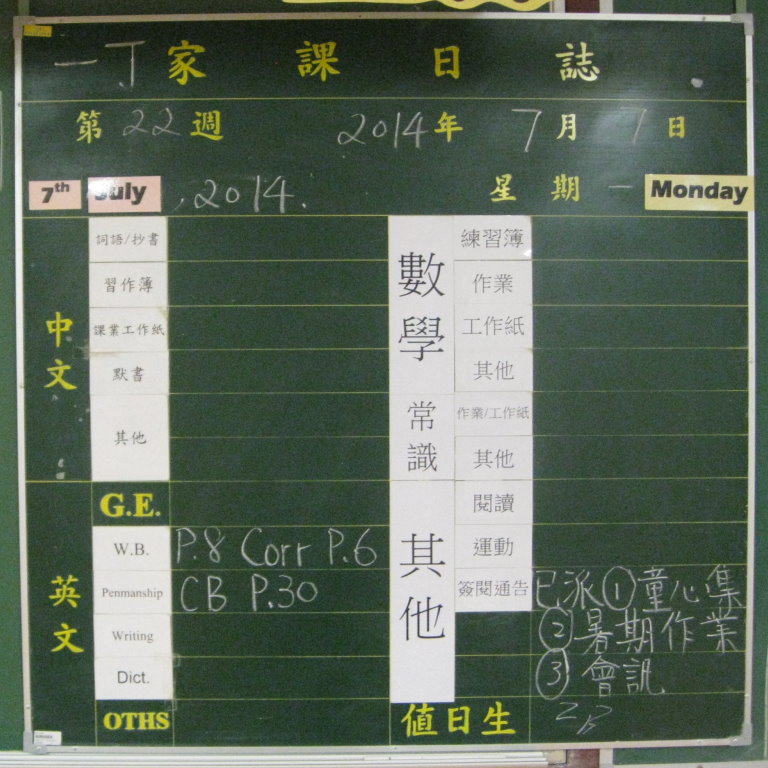 一丁家課日誌
第22週 2014年7月7日
7th July, 2014. 星期一 Monday
中文
詞語/抄書
習作簿
課業工作紙
默書
其他
英文
G.E.
W.B. P.8 Corr P.6
Penmanship CB P.30
Writing
Dict.
OTHS
數學
練習簿
作業
工作紙
其他
常識
作業/工作紙
其他
其他
閱讀
運動
簽閱通告 已派①童心集
②暑期作業
③會訊
值日生